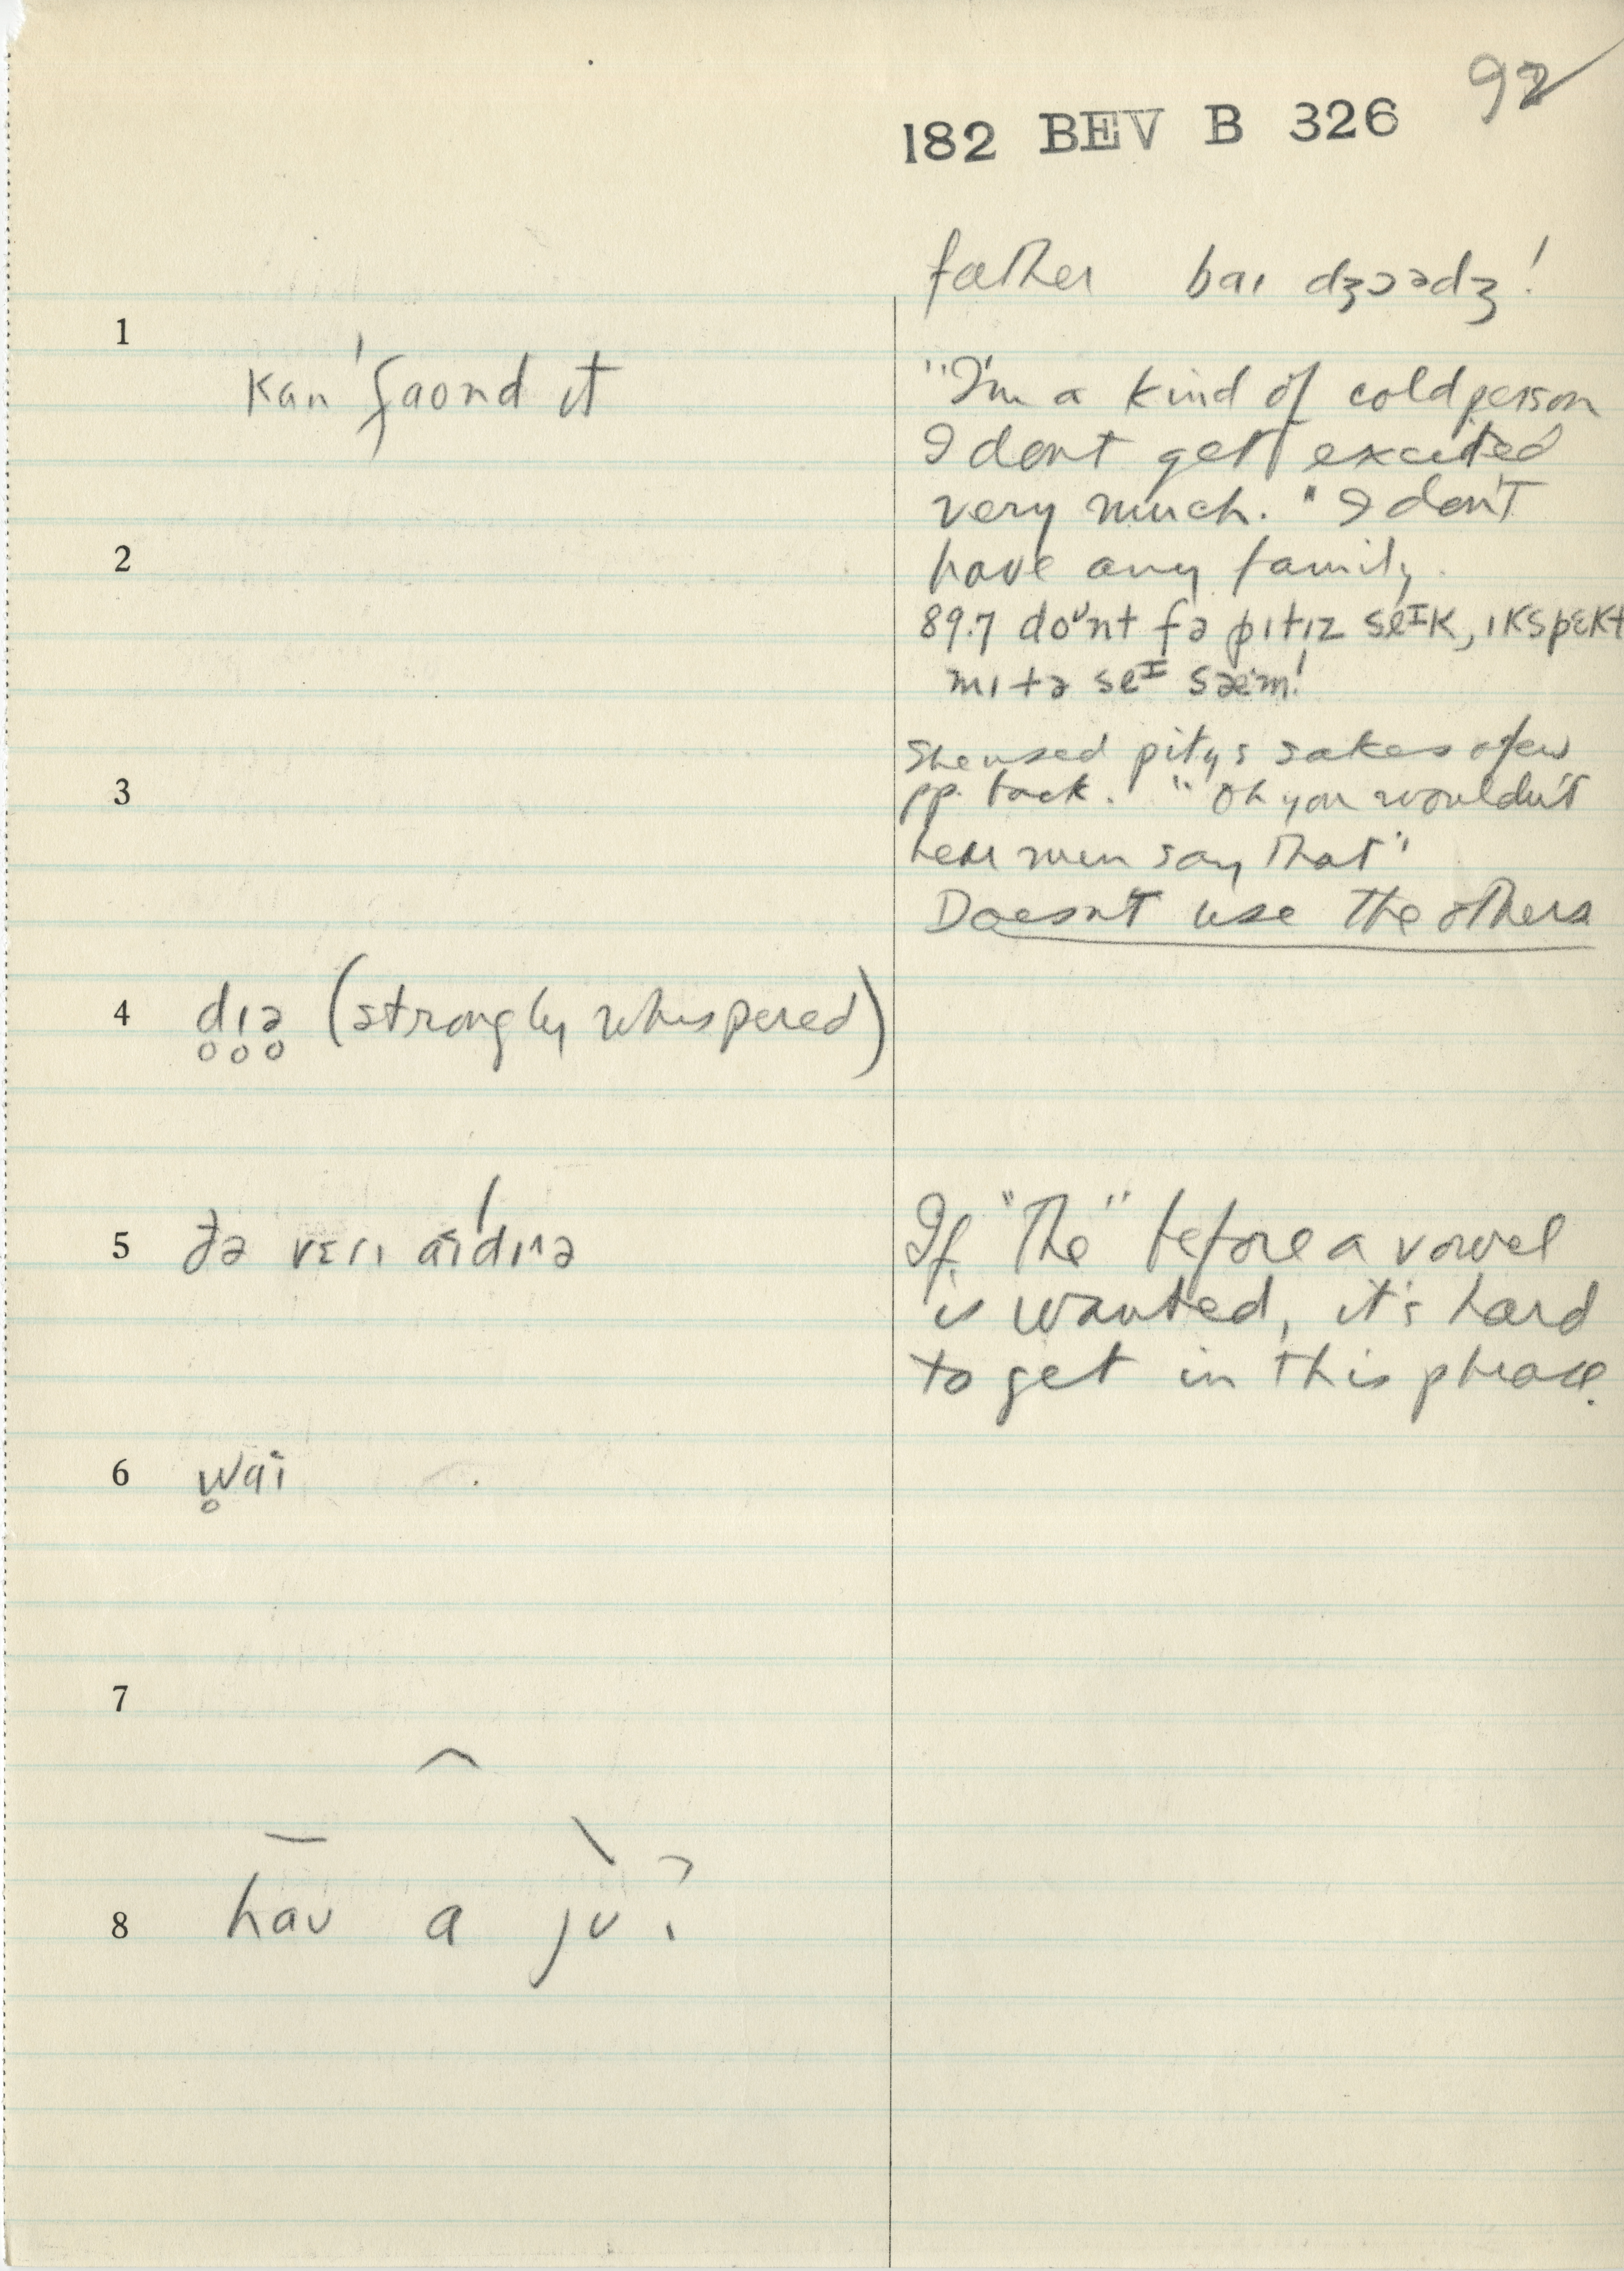 92
182 BEV B 326
father baɪ dʒɔədʒ!
1
kan' faond ɪt
"I'm a kind of cold person
I dont get excited
very much." I don't
2
have any family.
89.7 doʊnt fə pɪtɪz seɪk, ɪkspɛkt
mɪ tə seɪ sæm!
She used pity's sakes a few
3
pp. back. "Oh you wouldn't
hear men say that"
Doesn't use the others
4 d̥ɪ̥ə̥ (strongly whispered)
5 ðə vɛrɪ aɪdɪə
If "the" before a vowel
is wanted, it's hard
to get in this phrase.
6 w̥aɪ
7
8 haʊ a jʊ?